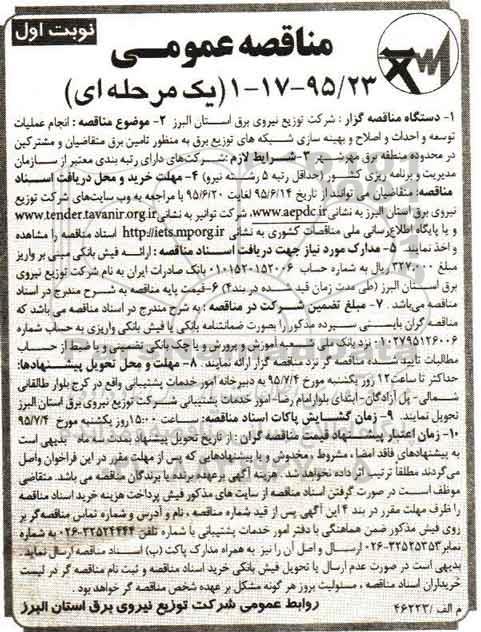 نوبت اول
مناقصه عمومی
۱-۱۷-۹۵/۲۳ (یک مرحله ای)
۱- دستگاه مناقصه گزار : شرکت توزیع نیروی برق استان البرز ۲- موضوع مناقصه : انجام عملیات
توسعه و احداث و اصلاح و بهینه سازی شبکه های توزیع برق به منظور تامین برق متقاضیان و مشترکین
در محدوده منطقه برق مهرشهر ۳- شرایط لازم :شرکت‌های دارای رتبه بندی معتبر از سازمان
مدیریت و برنامه ریزی کشور (حداقل رتبه ۵ رشته نیرو) ۴- مهلت خرید و محل دریافت اسناد
مناقصه: متقاضیان می توانند از تاریخ ۹۵/۶/۱۴ لغایت ۹۵/۶/۲۰ با مراجعه به وب سایت‌های شرکت توزیع
نیروی برق استان البرز به نشانی www.aepdc.ir، شرکت توانیر به نشانی www.tender.tavanir.org.ir
و یا پایگاه اطلاع‌رسانی ملی مناقصات کشوری به نشانی http://iets.mporg.ir اسناد مناقصه را مشاهده
و اخذ نمایند. ۵- مدارک مورد نیاز جهت دریافت اسناد مناقصه : ارائه فیش بانکی مبنی بر واریز
مبلغ ۳۲۷,۰۰۰ ریال به شماره حساب ۰۱۰۱۵۲۰۱۵۲۰۰۶ بانک صادرات ایران به نام شرکت توزیع نیروی
برق استان البرز (طی مدت زمان قید شده در بند۴) ۶-قیمت پایه مناقصه به شرح مندرج در اسناد
مناقصه می‌باشد. ۷- مبلغ تضمین شرکت در مناقصه : به شرح مندرج در اسناد مناقصه می باشد که
مناقصه گران بایستی سپرده مذکور را بصورت ضمانتنامه بانکی یا فیش بانکی واریزی به حساب شماره
۰۱۰۲۷۹۵۱۲۶۰۰۶ نزد بانک ملی شعبه آموزش و پرورش و یا چک بانکی تضمینی و یا ضبط از حساب
مطالبات تایید شده مناقصه گر نزد مناقصه گزار ارائه نمایند. ۸- مهلت و محل تحویل پیشنهادها:
حداکثر تا ساعت۱۲ روز یکشنبه مورخ ۹۵/۷/۴ به دبیرخانه امور خدمات پشتیبانی واقع در کرج بلوار طالقانی
شمالی- پل آزادگان- ابتدای بلوار امام رضا- امور خدمات پشتیبانی شرکت توزیع نیروی برق استان البرز
تحویل نمایند. ۹- زمان گشایش پاکات اسناد مناقصه: ساعت ۱۵:۰۰ روز یکشنبه مورخ ۹۵/۷/۴
۱۰- زمان اعتبار پیشنهاد قیمت مناقصه گران : از تاریخ تحویل پیشنهاد بمدت ماه بدیهی است
به پیشنهادهای فاقد امضا، مشروط، مخدوش و یا پیشنهادهایی که پس از مهلت مقرر در این فراخوان واصل
می‌گردند مطلقاً ترتیب اثر داده نخواهد شد. هزینه آگهی بر عهده برنده یا برندگان مناقصه می باشد. متقاضی
موظف است در صورت گرفتن اسناد مناقصه از سایت های مذکور فیش پرداخت هزینه خرید اسناد مناقصه
را ظرف مهلت مقرر در بند ۴ این آگهی پس از قید شماره مناقصه ، نام و آدرس و شماره تماس مناقصه‌گر بر
روی فیش مذکور ضمن هماهنگی با دفتر امور خدمات پشتیبانی با شماره تلفن ۳۲۵۲۴۴۴۴-۰۲۶ به شماره
نمابر ۳۲۵۲۵۳۵۳-۰۲۶ ارسال و اصل آن را نیز به همراه مدارک پاکت (ب) اسناد مناقصه ارسال نماید.
بدیهی است در صورت عدم ارسال یا تحویل فیش بانکی خرید اسناد مناقصه و ثبت نام مناقصه گر در لیست
خریداران اسناد مناقصه ، مسئولیت بروز هر گونه مشکل بر عهده شخص مناقصه گر خواهد بود.
روابط عمومی شرکت توزیع نیروی برق استان البرز
م الف /۴۶۲۲۳